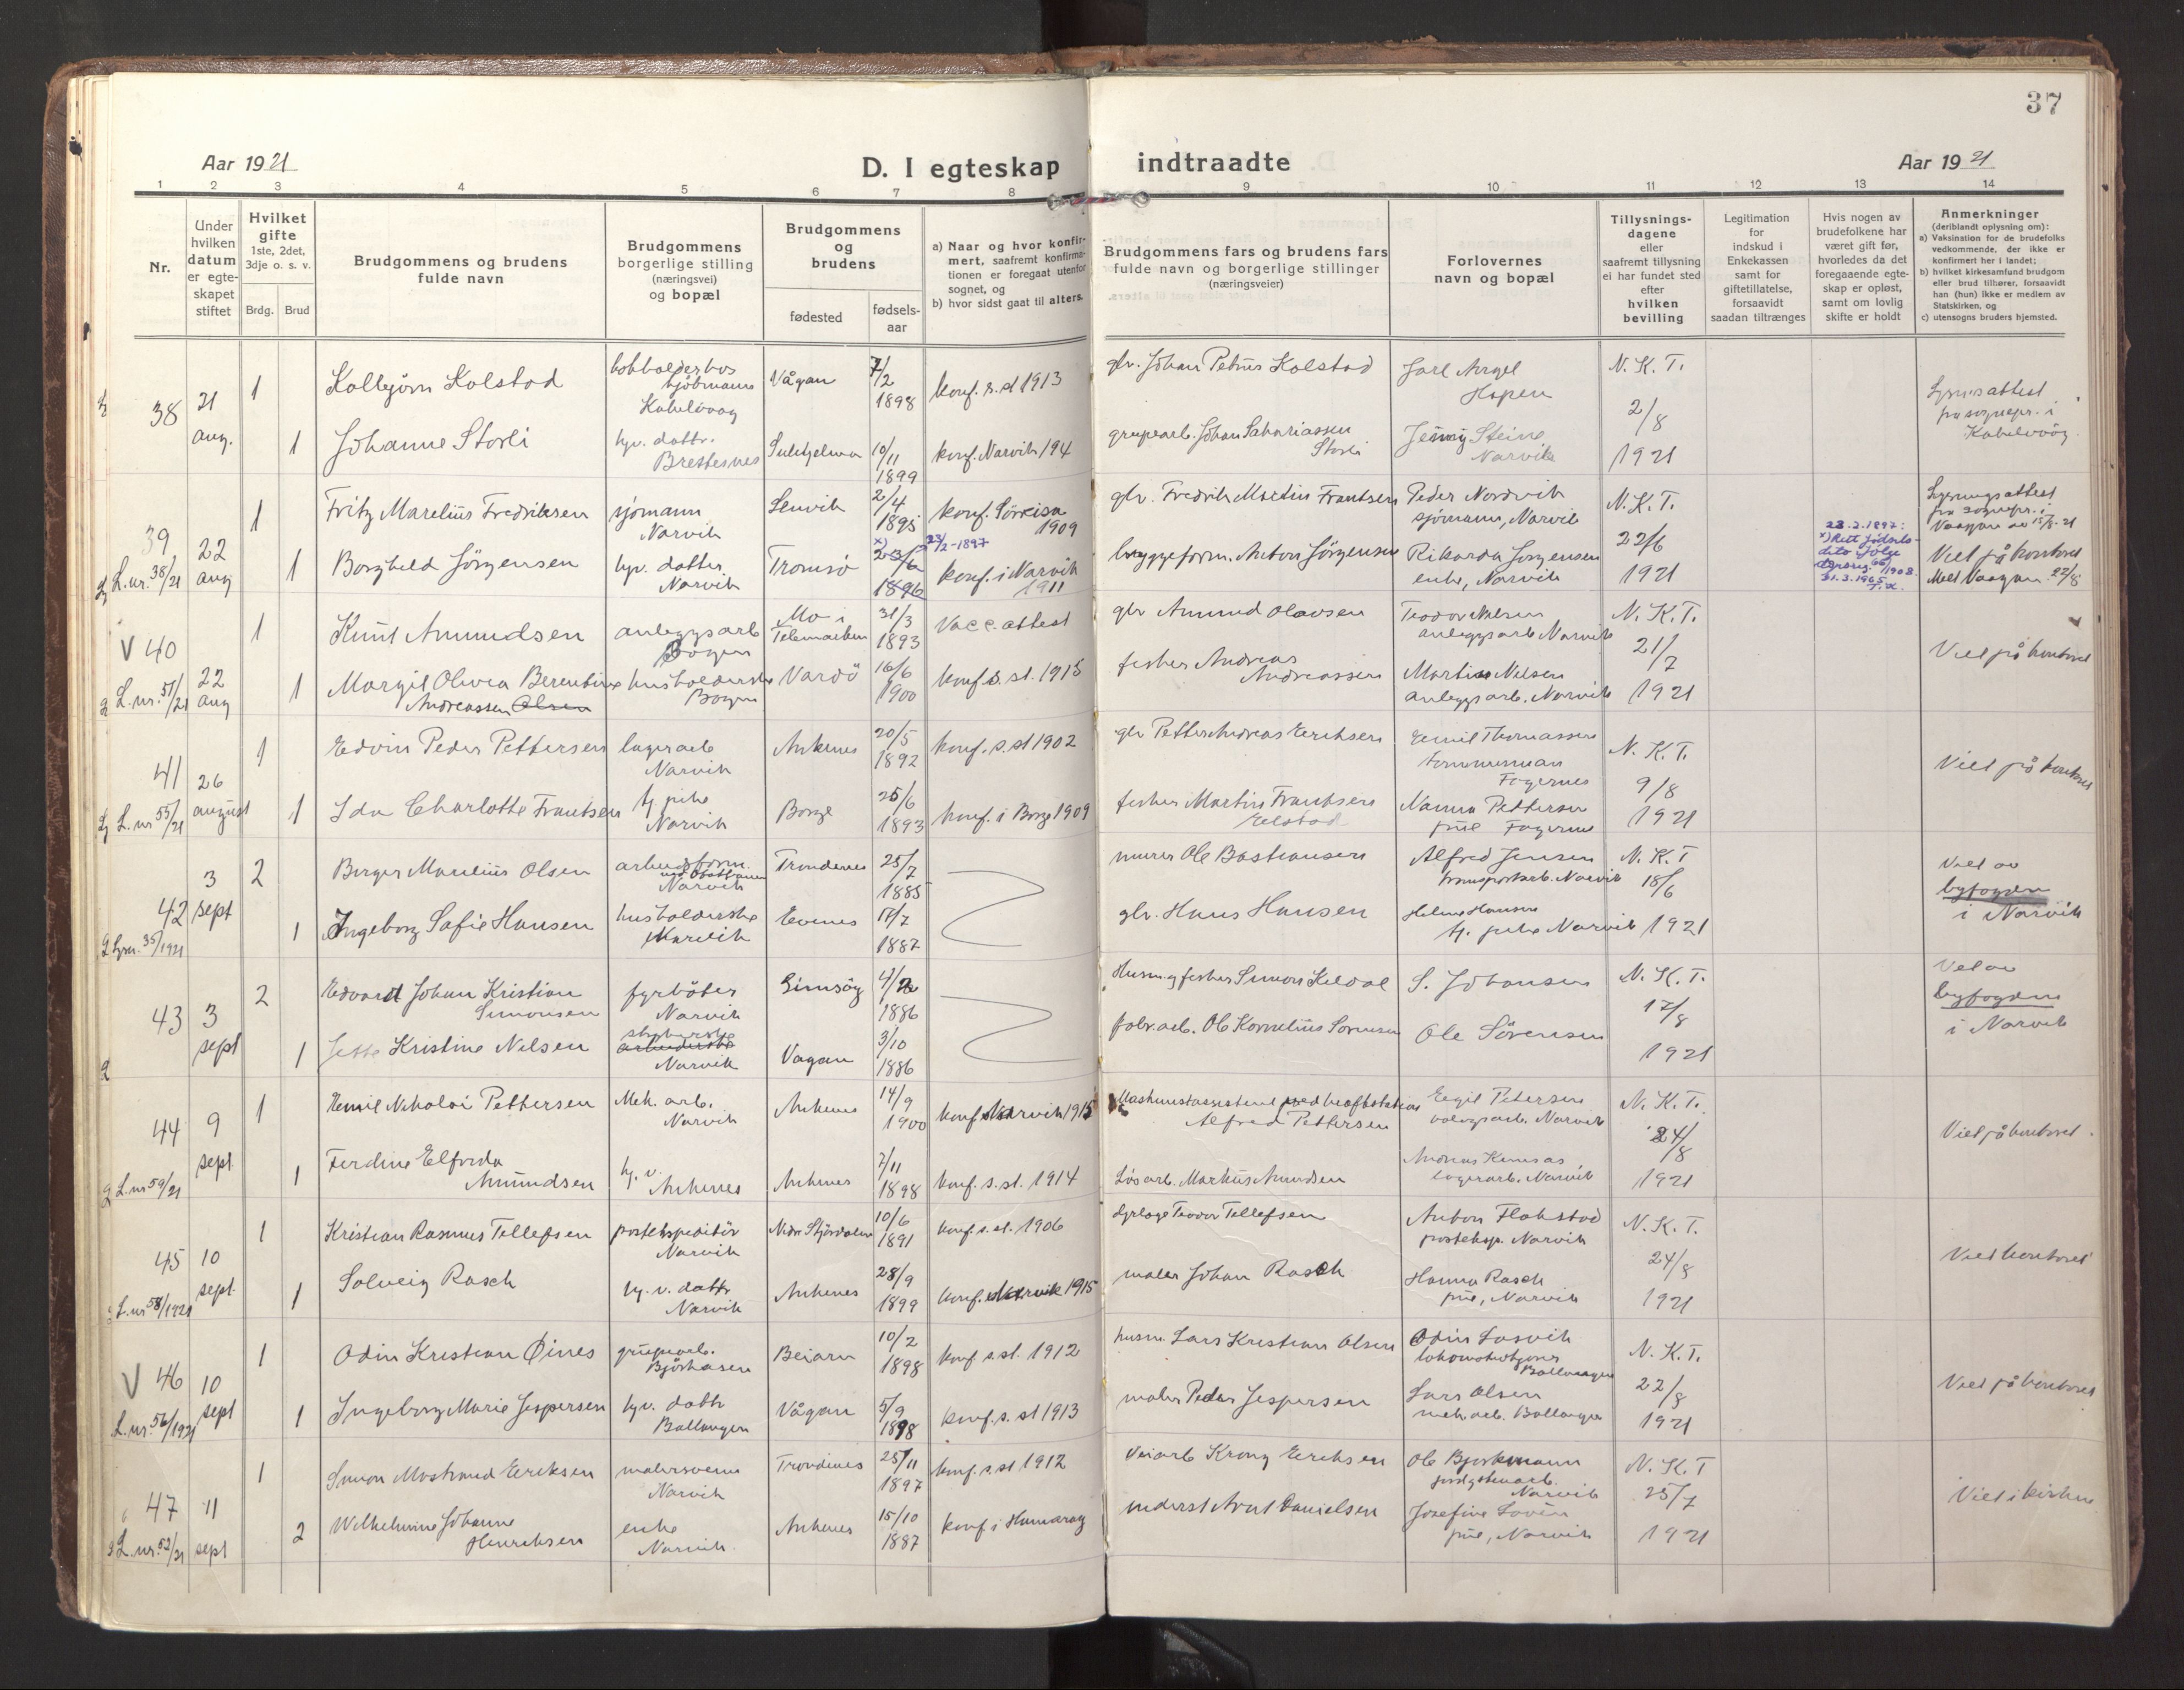 37
Aar 1921
D. I egteskap indtraadte
Aar 1921
1 2 3 4 5 6 7 8 9 10 11 12 13 14
Nr.
Under
hvilken
datum
er egte-
skapet
stiftet
Hvilket
gifte
1ste, 2det,
3dje o. s. v.
Brdg. Brud
Brudgommens og brudens
fulde navn
Brudgommens
borgerlige stilling
(næringsvei)
og bopæl
Brudgommens
og
brudens
fødested
fødsels-
aar
a) Naar og hvor konfir-
mert, saafremt konfirma-
tionen er foregaat utenfor
sognet, og
b) hvor sidst gaat til alters.
Brudgommens fars og brudens fars
fulde navn og borgerlige stillinger
(næringsveier)
Forlovernes
navn og bopæl
Tillysnings-
dagene
eller
saafremt tillysning
ei har fundet sted
efter
hvilken
bevilling
Legitimation
for
indskud i
Enkekassen
samt for
giftetillatelse,
forsaavidt
saadan tiltrænges
Hvis nogen av
brudefolkene har
været gift før,
hvorledes da det
foregaaende egte-
skap er opløst,
samt om lovlig
skifte er holdt
Anmerkninger
(deriblandt oplysning om):
a) Vaksination for de brudefolks
vedkommende, der ikke er
konfirmert her i landet;
b) hvilket kirkesamfund brudgom
eller brud tilhører, forsaavidt
han (hun) ikke er medlem av
Statskirken, og
c) utensogns bruders hjemsted.
38
21
aug.
1
Kolbjørn Kolstad
Kabelvaag
Vågan
7/2
1898
konf. s. st 1913
gbr. Johan Petrus Kolstad
Jarl Angel
Hopen
N. K. T.
2/8
1921
Lysn.attest
fra sognepr. i
Kabelvåg.
1
Johanne Storli
hjv. dattr.
Brettesnes
Sulitjelma
10/11
1899
konf. Narvik 194
grubearb. Johan Sakariassen
Storli
Jenny Steine
Narvik
39
L. nr. 38/21
22
aug
1
Fritz Marelius Fredriksen
sjømann
Narvik
Lenvik
2/4
1895
konf. Sørreisa
1909
gbr. Fredrik Martin Frantsen
Peder Nordvik
sjømann, Narvik
N. K. T.
22/6
1921
Lysningsattest
fra sognepr. i
Vaagan av 15/8-21
Viet på kontoret
Melt Vaagan 22/8
1
Borghild Jörgensen
hjv. datter
Narvik
Tromsö
x)
23/6
1896
23/2-1897
konf. i Narvik
1911
bryggeform. Anton Jörgensen
Rikarda Jorgensen
enke, Narvik
23.2.1897:
x) Rett fødsels-
dato ifølge
31.3.1965
V 40
L. nr. 51/21
22
aug
1
Knut Amundsen
anleggsarb
Bogen
Mo i
Telemarken
31/3
1893
Vacc. attest
gbr Amund Olavsen
Teodor Nilsen
anleggsarb Narvik
N. K. T.
21/7
1921
Viet på kontoret
1
Margit Olivia Berentine
Andreassen Olsen
husholderske
Bogen
Vardö
16/6
1900
konf. s. st. 1915
fisker Andreas
Andreassen
Martin Nilsen
anleggsarb. Narvik
41
L. nr 55/21
26
august
1
Edvin Peder Pettersen
lagerarb
Narvik
Ankenes
20/5
1892
konf. s. st 1902
gbr Petter Andreas Eriksen
Emil Thomassen
tømmerman
Fagernes
N. K. T.
9/8
1921
Viet på kontoret
1
Ida Charlotte Frantsen
tj. pike
Narvik
Borge
25/6
1893
konf. i Borge 1909
fisker Martin Frantsen
Nanna Pettersen
frue Fagernes
42
Lysn. 35/1921
3
sept
2
Birger Marelius Olsen
arbeidsform.
Narvik
Trondenes
25/7
1885
murer Ole Bastiansen
Alfred Jensen
transportarb. Narvik
N. K. T
18/6
1921
Viet av
byfogden
i Narvik
1
Ingeborg Sofie Hansen
husholderske
Narvik
Evenes
17/7
1887
gbr. Hans Hansen
Helene Hansen
tj. pike Narvik
43
3
sept
2
Edvardt Johan Kristian
Simonsen
fyrböter
Narvik
Gimsöy
1886
Husm. og fisker Simon Kildal
S. Johansen
N. K. T.
17/8
1921
Viet av
byfogden
i Narvik
1
Jette Kristine Nilsen
Narvik
Vagan
3/10
1886
Ole Sörensen
44
L. nr 59/21
9
sept
1
Emil Nikolai Pettersen
Mek. arb.
Narvik
Ankenes
14/9
1900
konf Narvik 1915
Maskinistassistent ved kraftstation
Alfred Pettersen
Eigil Petersen
Narvik
N. K. T.
24/8
1921
Viet på kontoret.
1
Ferdine Elfrida
Amundsen
hj. v.
Ankenes
Ankenes
7/11
1898
konf. s. st. 1914
Løsarb. Markus Amundsen
lagerarb. Narvik
45
L. nr 58/1921
10
sept.
1
Kristian Rasmus Tellefsen
postekspeditör
Narvik
Nedre Stjørdalen
10/6
1891
konf. s. st. 1906
dyrlæge Teodor Tellefsen
Anton Flakstad
posteksp. Narvik
N. K. T.
24/8
1921
Viet kontoret
1
Solveig Rasch
hj. v. dattr
Narvik
Ankenes
28/9
1899
konf. Narvik 1915
maler Johan Rasch
Hanna Rasch
frue, Narvik
V 46
L. nr. 56/1921
10
sept
1
Odin Kristian Öines
grubearb.
Bjørkåsen
Beiarn
10/2
1898
konf s. st. 1912
husm. Lars Kristian Olsen
Odin Losvik
Ballangen
N. K. T.
22/8
1921
Viet på kontoret
1
Ingeborg Marie Jespersen
hjv. dattr
Ballangen
Vågan
5/9
1898
konf. s. st 1913
maler Peder Jespersen
Lars Olsen
mek. arb. Ballangen
47
L. nr. 52/21
11
sept
1
Simon Mostrand Eriksen
malersvenn
Narvik
Trondenes
25/11
1897
konf. s. st 1912
Veiarb Krong Eriksen
Ole Bjorkmann
Narvik
N. K. T
25/7
1921
Viet i kirken
2
Wilhelmine Johanne
Henriksen
enke
Narvik
Ankenes
15/10
1887
konf i Hamarøy
inderst Arnt Danielsen
Josefine Lovén
frue, Narvik